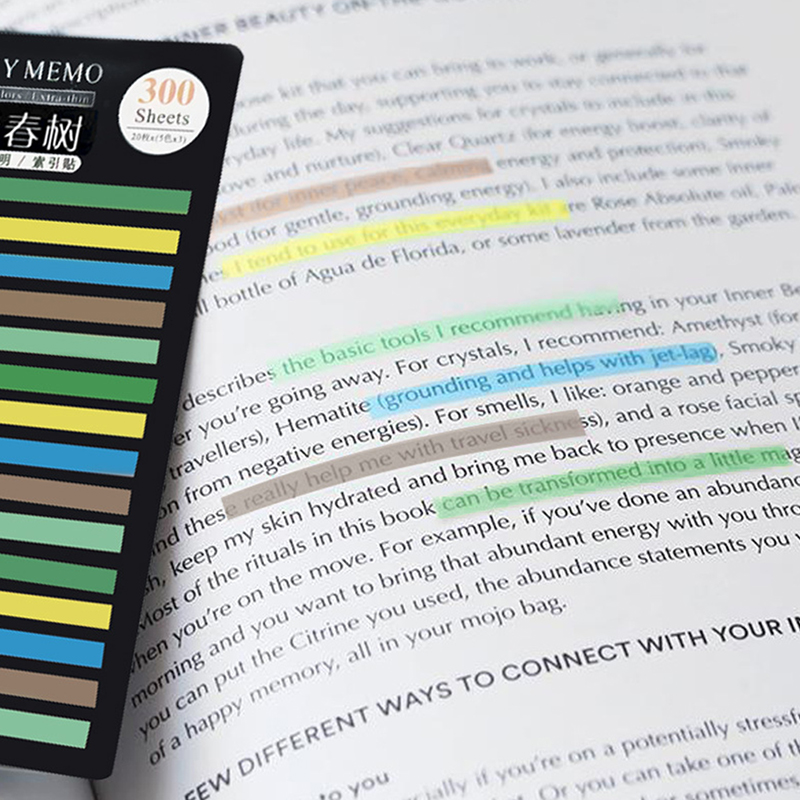 Y MEMO
Extra-thin
春树
明 / 索引贴
300
Sheets
20枚x(5色x3)
INNER BEAUTY ON-THE-
kit that you can bring to work, or generally for
during the day, supporting you to stay connected to that
life. My suggestions for crystals to include in this
and nurture), Clear Quartz (for energy boost, clarity of
(for inner peace, calming energy and protection), Smoky
(for gentle, grounding energy). I also include some inner
I tend to use for this everyday kit are Rose Absolute oil, Palo
bottle of Agua de Florida, or some lavender from the garden.
describes the basic tools I recommend having in your Inner Be
er you're going away. For crystals, I recommend: Amethyst (for
travellers), Hematite (grounding and helps with jet-lag), Smoky
on from negative energies). For smells, I like: orange and pepper
nd these really help me with travel sickness), and a rose facial sp
sh, keep my skin hydrated and bring me back to presence when I
Most of the rituals in this book can be transformed into a little mag
hen you're on the move. For example, if you've done an abundanc
morning and you want to bring that abundant energy with you thro
you can put the Citrine you used, the abundance statements you w
of a happy memory, all in your mojo bag.
FEW DIFFERENT WAYS TO CONNECT WITH YOUR I
to you
cially if you're on a potentially stressf
Or you can take one of th
sometimes